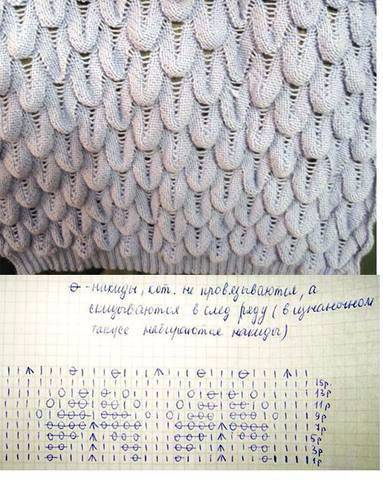 ⊖ - накиды, кот. не провязываются, а
скидываются в след ряду (в изнаночном
также набираются накиды)
15р
13р
11р
9р
7р
5р
3р
1р